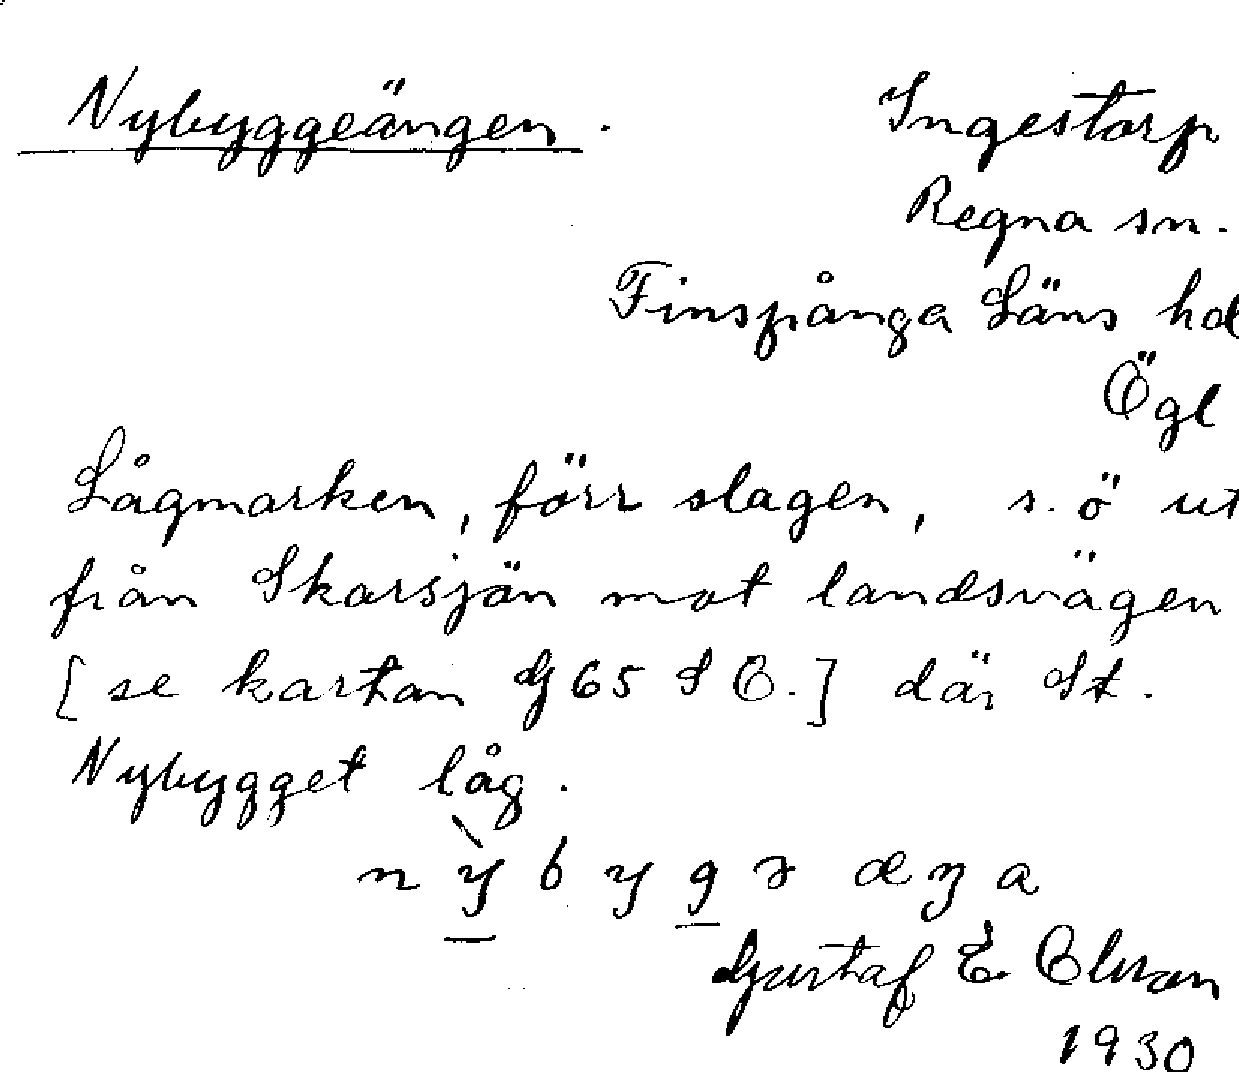 Nybyggeängen. Ingestorp
Regna sn.
Finspånga Läns hd
Ögl
Lågmarken, förr slagen, s. ö ut
från Skarsjön mot landsvägen
[se kartan G 65 S Ö.] där St.
Nybygget låg.
n ỳ b y g ə æ ŋ a
Gustaf E Olson
1930